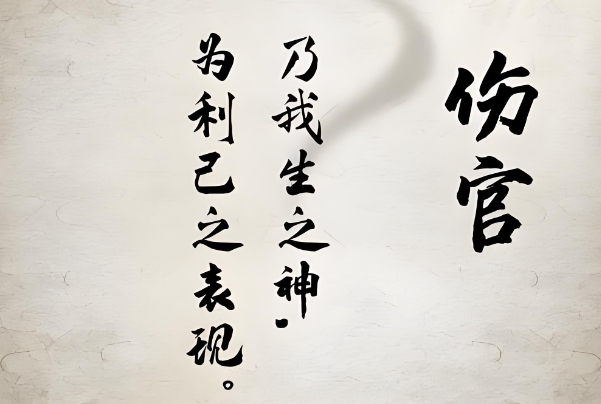 伤官
乃我生之神，
为利己之表现。